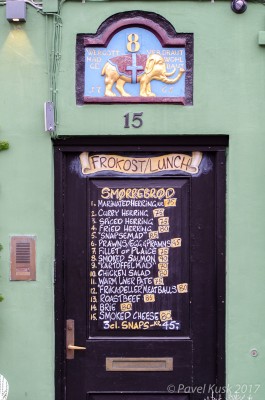 8
15
FROKOST/LUNCH
SMØRREBRØD
1. MARINATED HERRING KR. 75
2. CURRY HERRING 75
3. SPICED HERRING 75
4. FRIED HERRING 80
5. "SNAPSEMAD" 85
6. PRAWNS/EGG&PRAWNS
7. FILLET OF PLAICE
8. SMOKED SALMON
9. "KARTOFFELMAD"
10. CHICKEN SALAD 80
11. WARM LIVER PATE
12. "FRIKADELLER" MEATBALLS
13. ROASTBEEF
14. BRIE 80
15. SMOKED CHEESE
3 CL. SNAPS - KR 45.-
© Pavel Kusk 2017